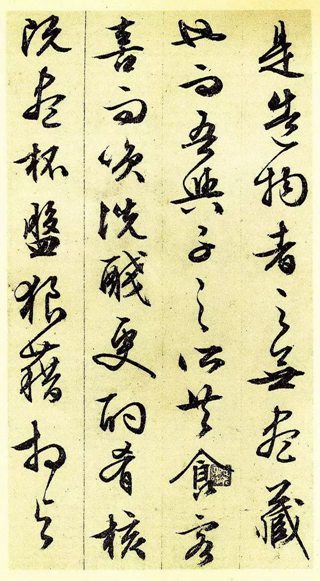 是造物者之無盡藏
也而吾與子之所共食客
喜而咲洗醆更酌肴核
既盡杯盤狼藉相與